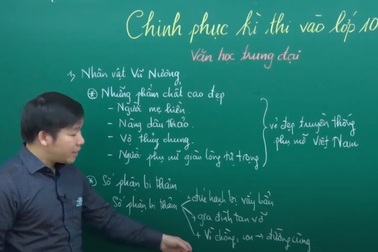 Chinh phục kì thi vào lớp 10
Văn học trung đại
1, Nhân vật Vũ Nương
* Những phẩm chất cao đẹp
- Người mẹ hiền
- Nàng dâu thảo.
- Vợ thủy chung.
- Người phụ nữ giàu lòng tự trọng
vẻ đẹp truyền thống
phụ nữ Việt Nam
* Số phận bi thảm
Số phận bi thảm
+ chế
gia đình tan vỡ
+ Vì chồng, con → đường cùng